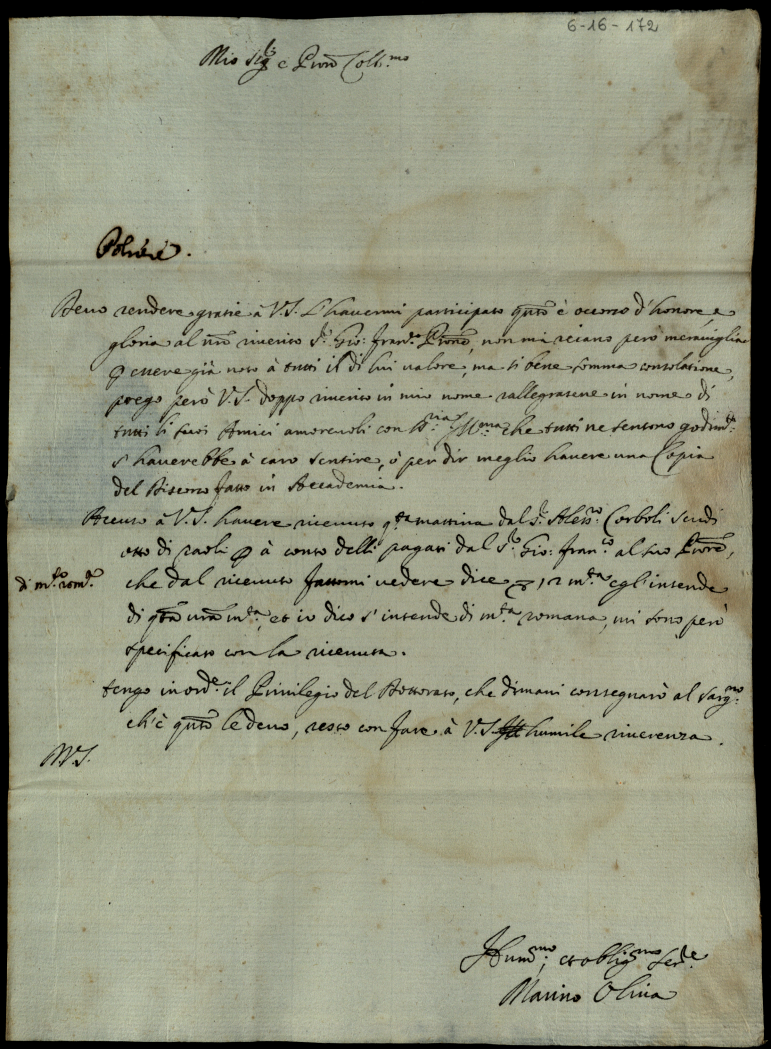 6-16-172
Mio Sig.r e Pron Coll.mo
Devo rendere gratie à V.S. l'havermi participato qnto è occorso d'honore, e
gloria al nro riverito S.r Gio: Fran.co Prone, non mi recano però meraviglia
essere già noto à tutti il di lui valore, ma si bene somma consolatione,
prego però V.S. doppo riverito in mio nome rallegrarsene in nome di
tutti li suoi Amici amorevoli con che tutti ne sentono godim.to
s'haverebbe à caro sentire, ò per dir meglio havere una Copia
del Discorso fatto in Accademia.
Accuso à V.S. havere ricevuto q.ta mattina dal S.r Aless.o Corboli scudi
otto di paoli à conto delli pagati dal S.r Gio: Fran.co al suo Prone,
che dal ricevuto fattomi vedere dice 12 m.ta egl'intende
di m.ta rom.a
di qta nra m.ta, et io dico s'intende di m.ta romana, mi sono però
specificato con la ricevuta.
tengo in ord.e il Privilegio del Dottorato, che dimani consegnarò al
ch'è qnto le devo, resto con fare à V.S. humile riverenza.
Hum.mo, et oblig.mo Ser.re
Marino Oliva